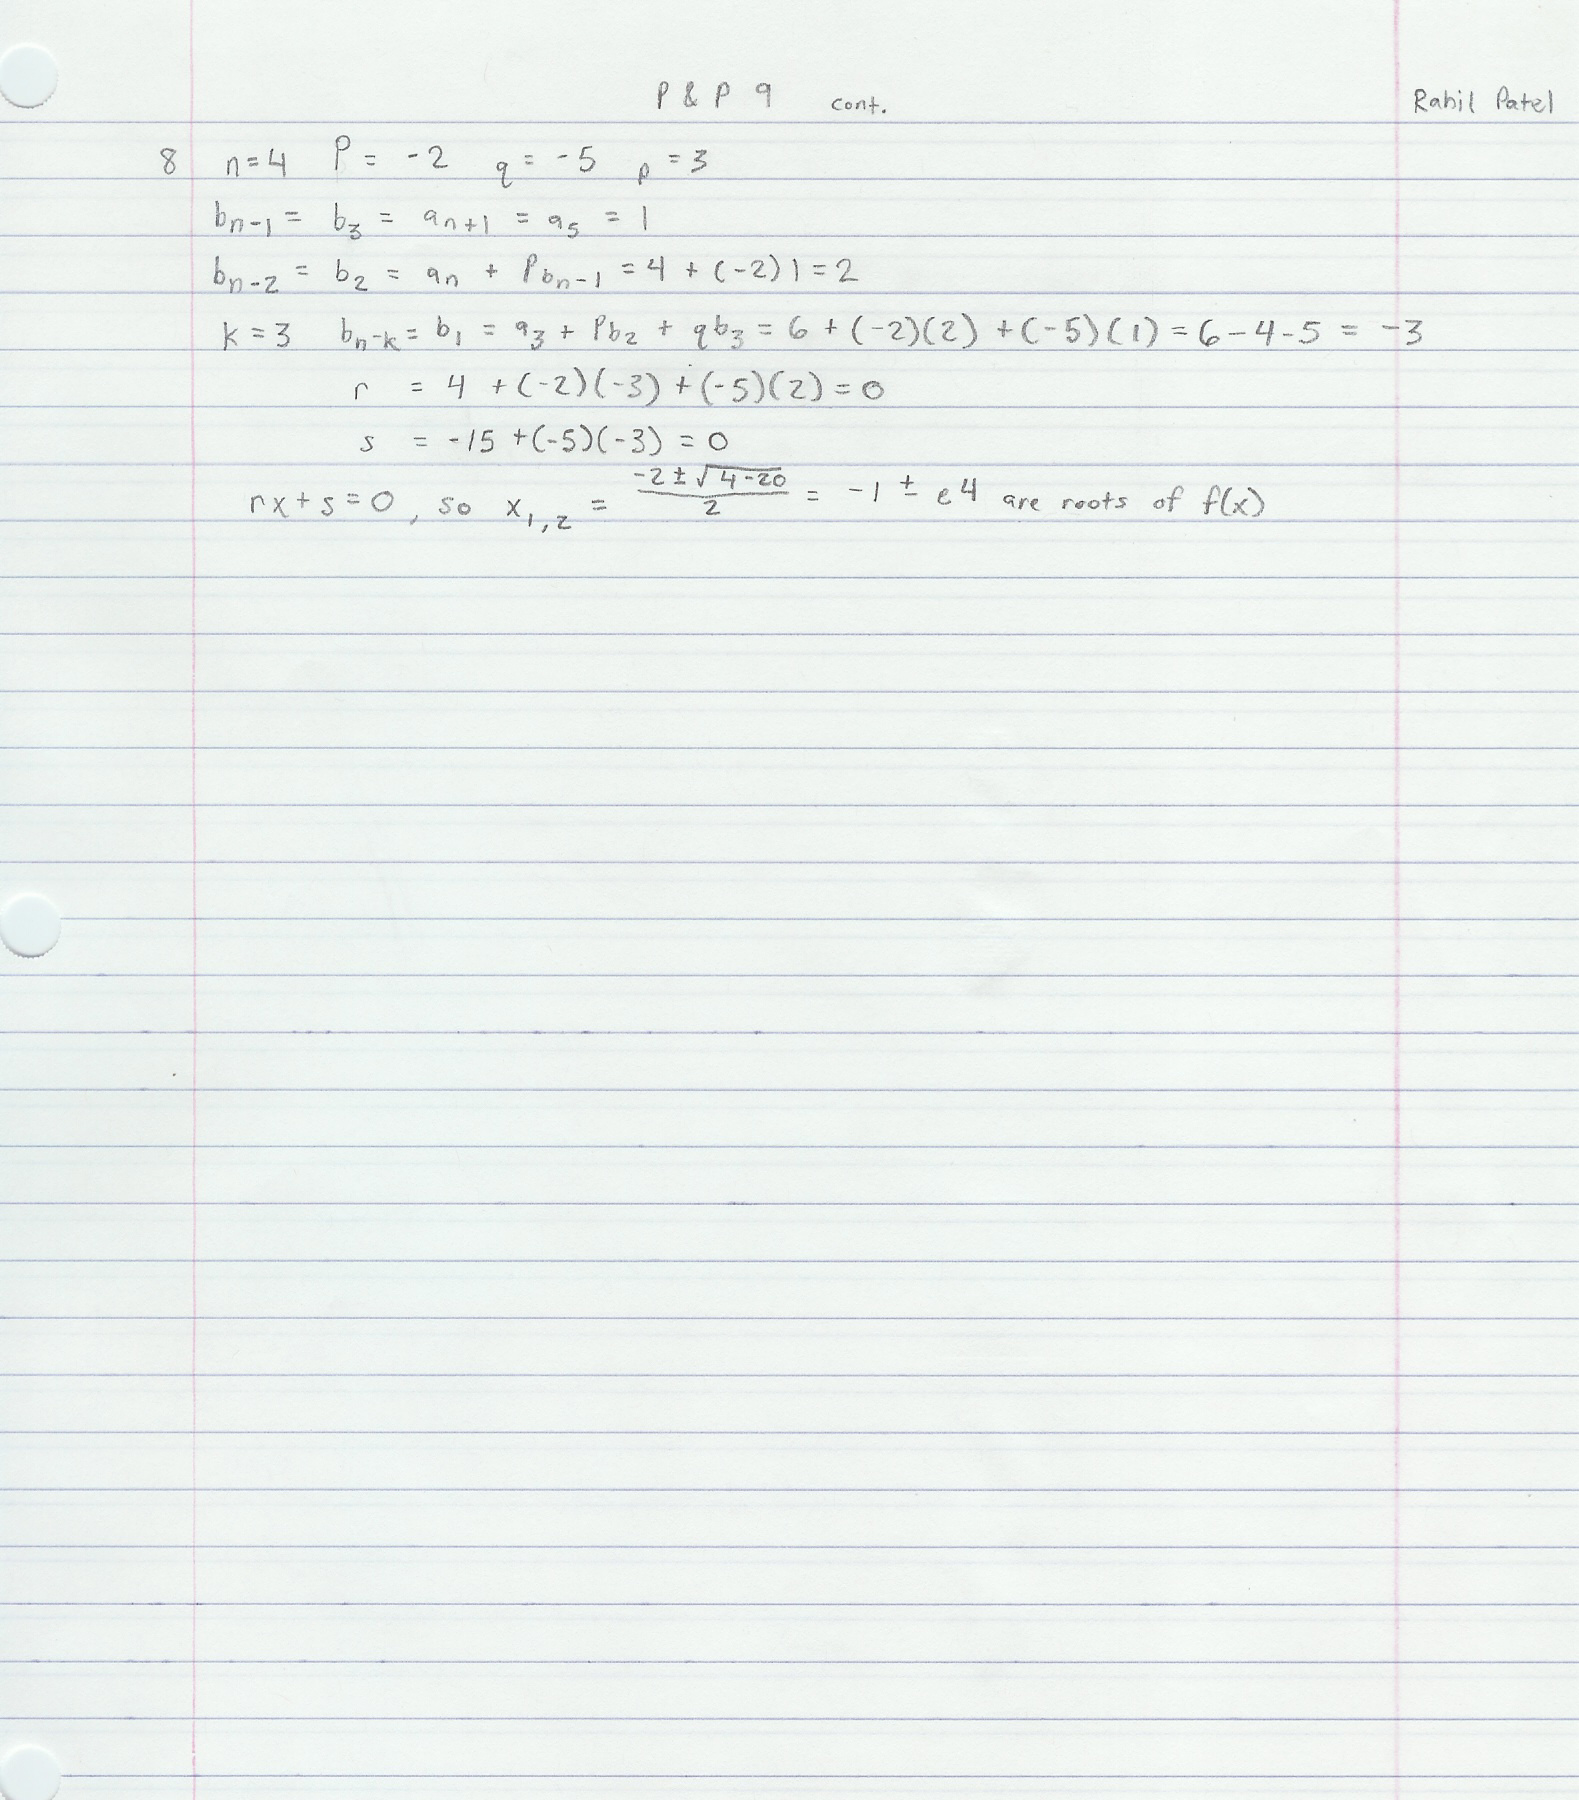 P & P 9 cont. Rahil Patel
8 n=4 P = -2 q = -5 p = 3
b_{n-1} = b_3 = a_{n+1} = a_5 = 1
b_{n-2} = b_2 = a_n + P b_{n-1} = 4 + (-2) 1 = 2
k = 3 b_{n-k} = b_1 = a_3 + P b_2 + q b_3 = 6 + (-2)(2) + (-5)(1) = 6 - 4 - 5 = -3
r = 4 + (-2)(-3) + (-5)(2) = 0
s = -15 + (-5)(-3) = 0
rx + s = 0, so x_{1,2} = \frac{-2 ± \sqrt{4-20}}{2} = -1 ± e4 are roots of f(x)